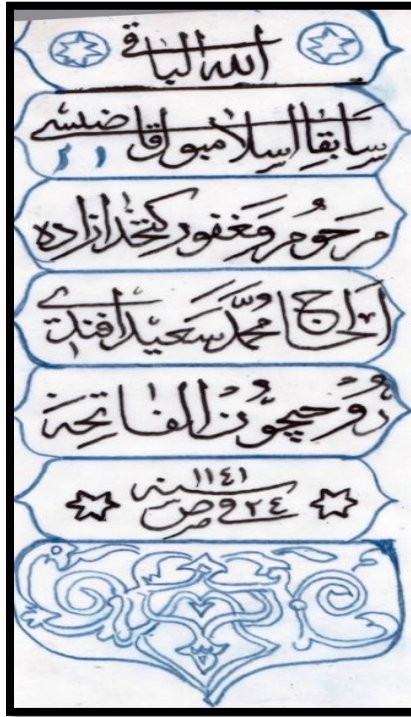 الله الباقي
سَابقا اسلامبول قاضيسى
مرحُوم و مغفور كتخدا زاده
الحاج محمَّد سَعيد افندى
رُوحيچُون الفاتحة
سنه ١١٤١
٢٤ في